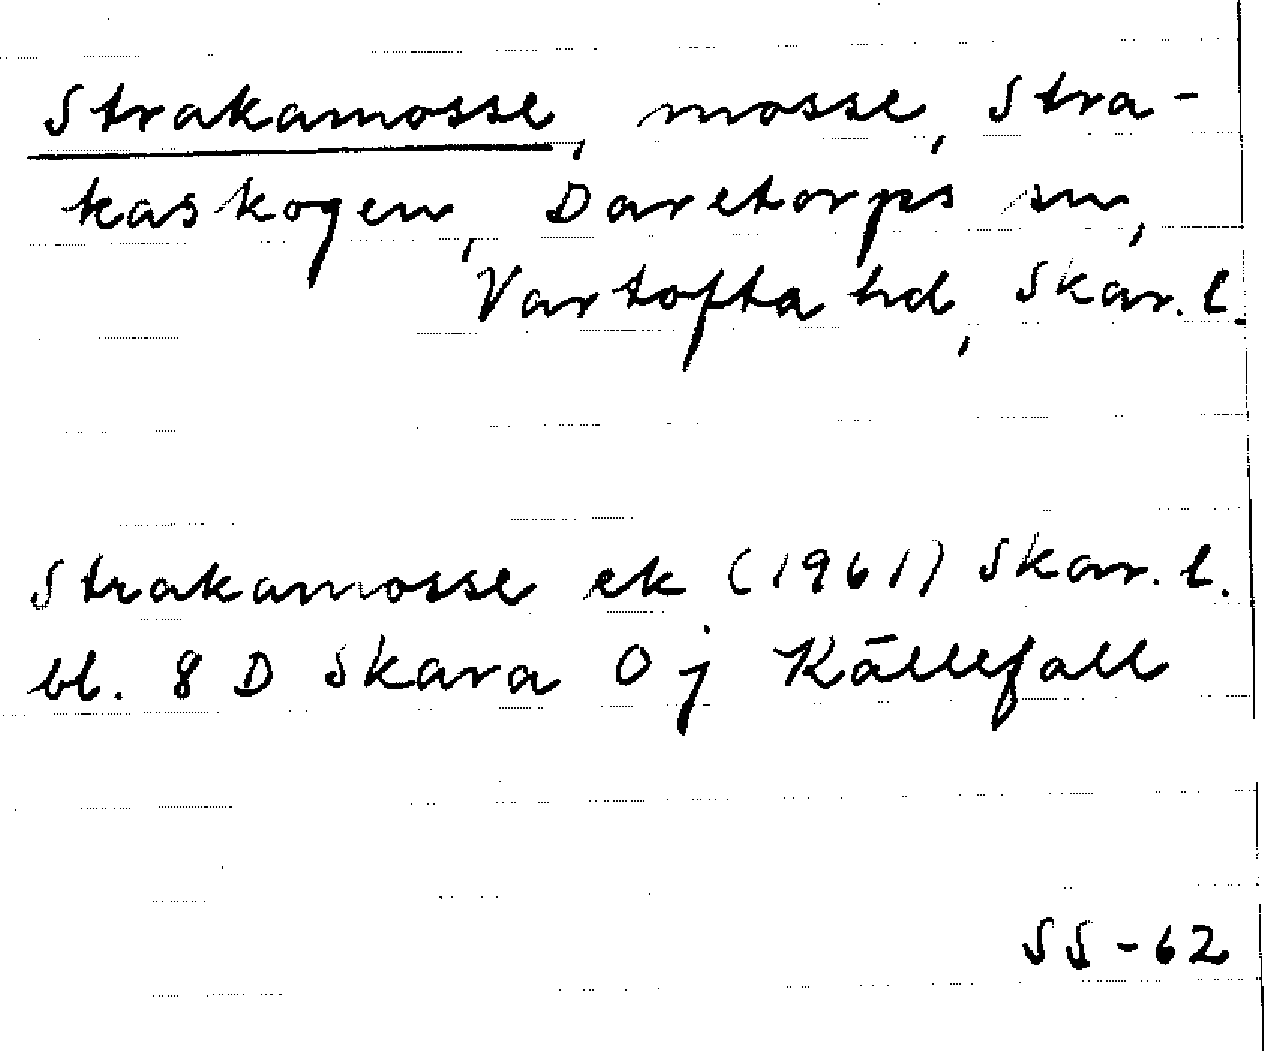 Strakamosse, mosse, Stra-
kaskogen, Daretorps sn,
Vartofta hd, Skar. l.
Strakamosse ek (1961) Skar. l.
bl. 8 D Skara 0 j Källefall
SS-62